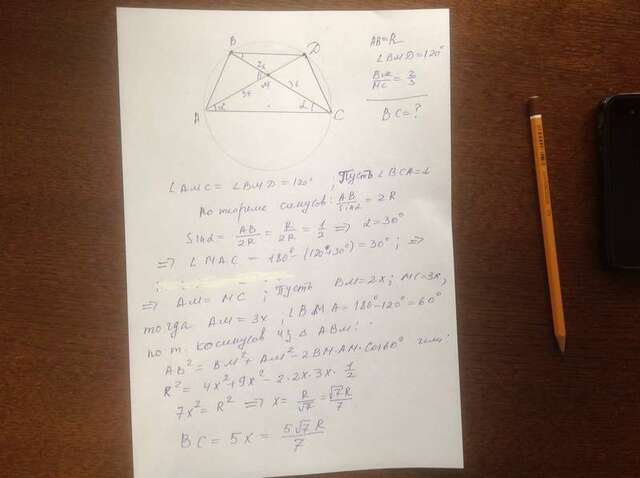 B
D
2x
M
3x
3x
A
α
α
C
AB=R
∠BMD=120°
BM/MC = 2/3
BC=?
∠AMC = ∠BMD = 120° ; Пусть ∠BCA=α
По теореме синусов: AB/sinα = 2R
Sinα = AB/2R = R/2R = 1/2 ⇒ α=30°
⇒ ∠MAC = 180° - (120°+30°) = 30° ; ⇒
⇒ AM = MC ; Пусть BM=2x; MC=3x,
тогда AM = 3x ; ∠BMA = 180°-120° = 60°
по т. косинусов из △ABM:
AB² = BM² + AM² - 2BM·AM·Cos60° или:
R² = 4x² + 9x² - 2·2x·3x·1/2
7x² = R² ⇒ x = R/√7 = √7R/7
BC = 5x = 5√7R/7